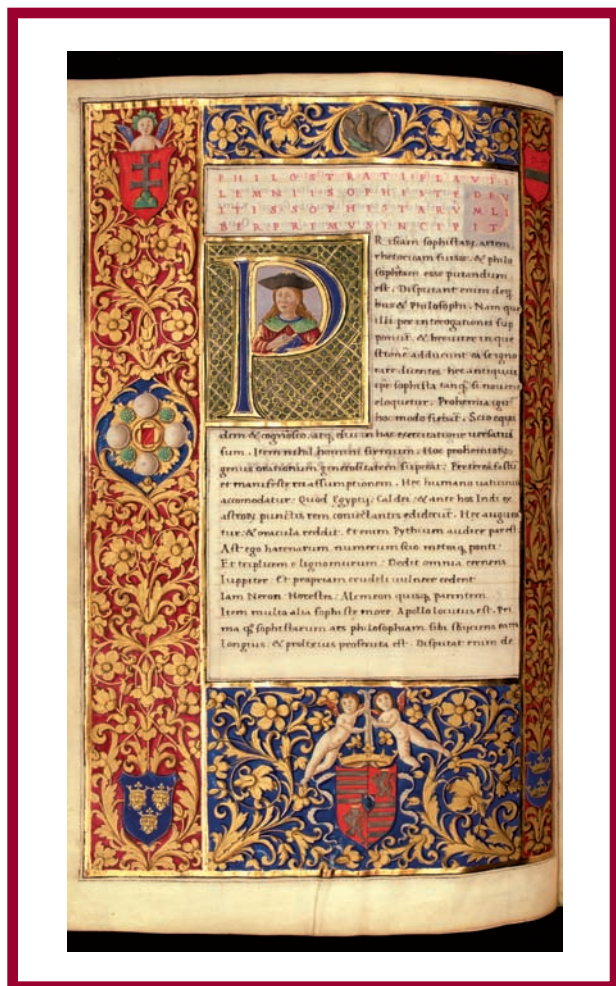 PHILOSTRATI FLAVII
LEMNII SOPHISTE DE VI
TIS SOPHISTARVM LI
BER PRIMVS INCIPIT
P
Risiam sophistarū artem
rhetoricam fuisse, & philo
sophiam esse putandum
est. Disputant enim de
bus & Philosophi. Nam que
illi per interogationes sup
ponūt, & breviter in que
stione adducunt ea se igno
rare dicentes. hec antiquus
sophista tanq̄ si noverit
eloquetur. Prohemia
hoc modo fiebāt. Scio equi
dem & cognosco, atq, diu in hac exercitatione versatus
sum. Item nihil homini firmum. Hoc prohemiorū
genus orationum generositatem
et manifeste rei assumptionem. Hec humano vaticinio
accomodatur. Quod Egyptij, Caldei, & ante hos Indi ex
astrorū punctis rem coniectantes ediderūt. Hec augura
tur, & oracula reddit. Et enim Pythium audire par est.
Ast ego harenarum numerum scio metasq, ponti.
Et triplicem e lignomurum. Dedit omnia cernens
Iuppiter. Et propriam crudeli vulnere cedent
Iam Neron. Horestes. Alcmeon quisq, parentem
Item multa alia sophiste more Apollo locutus est. Pri
ma q̄ sophistarum ars philosophiam sibi eam
Longius, & prolixius prosecuta est. Disputat enim de